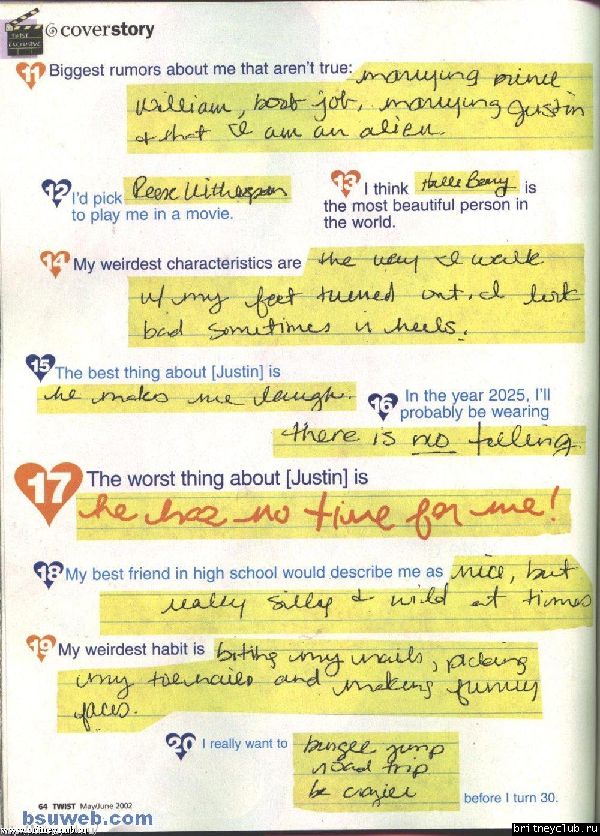 TWIST
EXCLUSIVE
coverstory
11 Biggest rumors about me that aren't true: marrying prince
William, boob job, marrying Justin
& that I am an alien.
12 I'd pick Reese Witherspoon
to play me in a movie.
13 I think Halle Berry is
the most beautiful person in
the world.
14 My weirdest characteristics are the way I walk
w/ my feet turned out. I look
bad sometimes in heels.
15 The best thing about [Justin] is
he makes me laugh.
16 In the year 2025, I'll
probably be wearing
there is no telling.
17 The worst thing about [Justin] is
he has no time for me!
18 My best friend in high school would describe me as nice, but
really silly & wild at times
19 My weirdest habit is biting my nails, picking
my toenails and making funny
faces.
20 I really want to bungee jump
road trip
be crazier before I turn 30.
64 TWIST May/June 2002
bsuweb.com
www.britneyclub.ru
britneyclub.ru